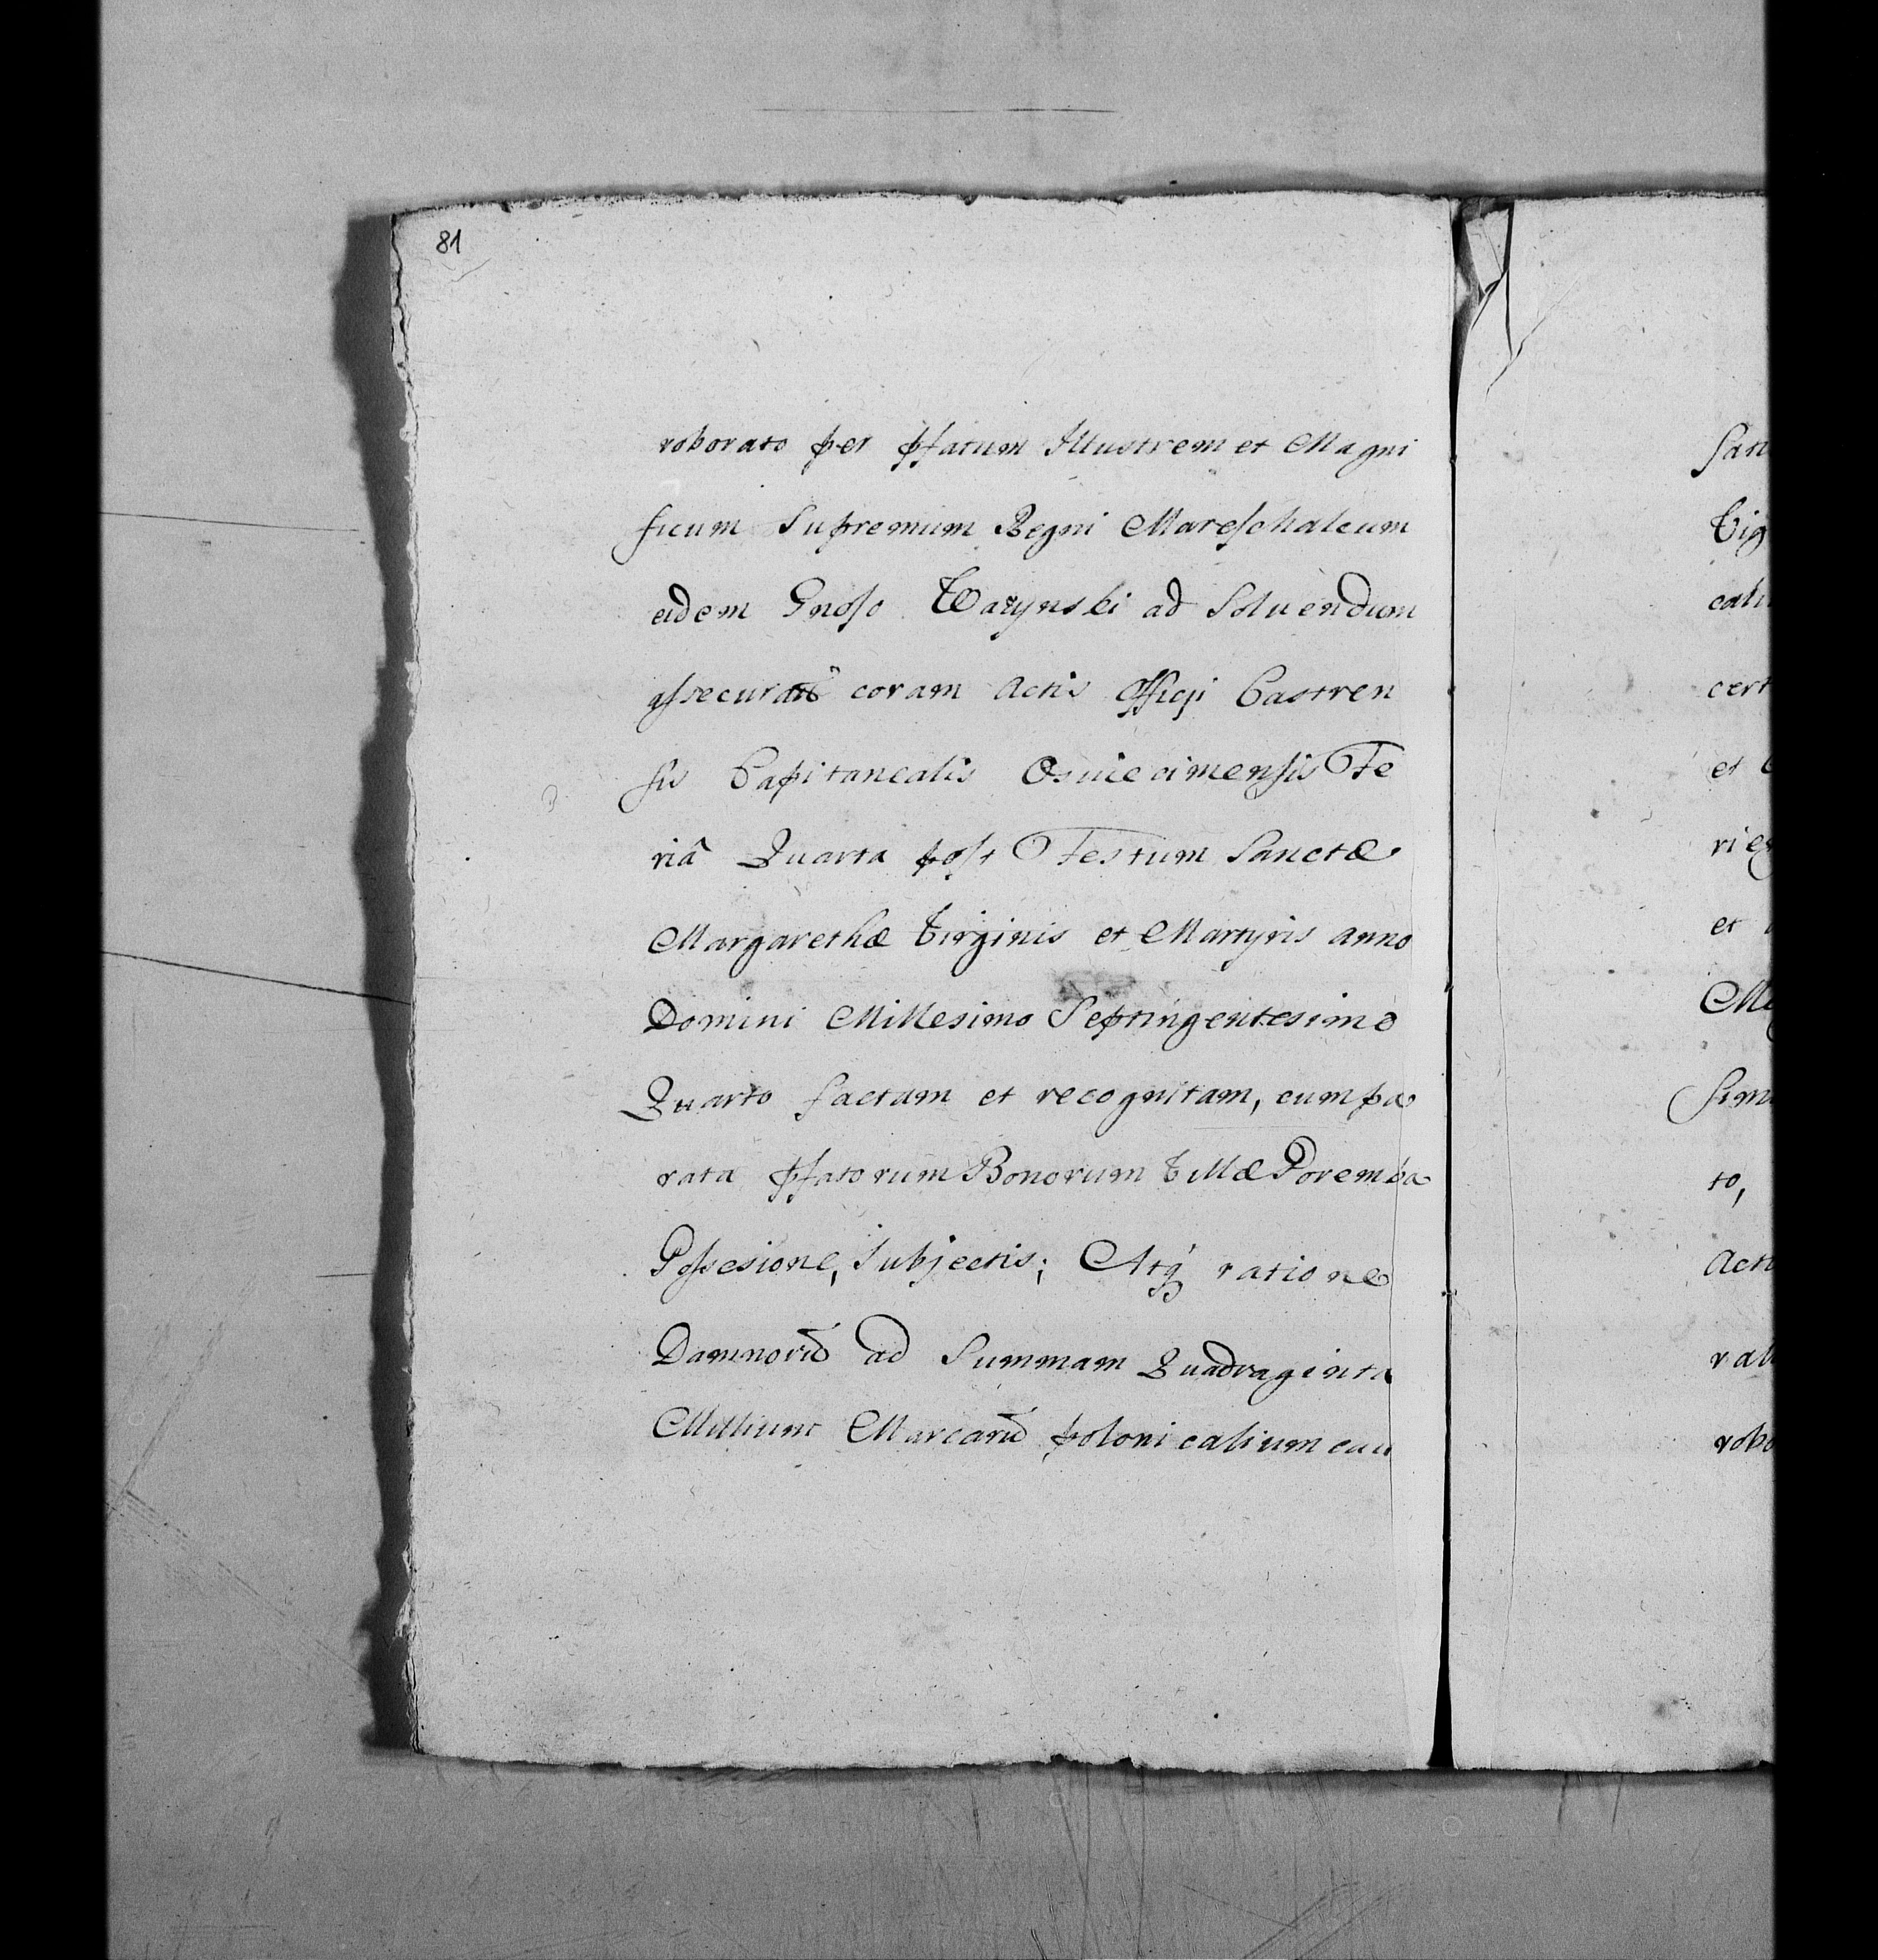 81
roborato per pſatum Illustrem et Magni
ficum Supremum Regni Mareſchalcum
eidem Gnoſo Wazynski ad Soluendum
aſsecuratō coram Actis Officÿ Castren
ſis Capitanealis Osuiecimenſis Fe
riâ Quarta poſt Festum Sanctæ
Margarethæ Virginis et Martyris anno
Domini Millesimo Septingentesimo
Quarto factam et recognitam, cum pa
rata pſatorum Bonorum Villæ Poremba
Poſsesione, Subjectis; Atq́ ratione
Damnorū ad Summam Quadraginta
Millium Marcarū polonicalium cau
San
Vig
calu
cert
et
rie
et
Sim
to,
Acti
robo